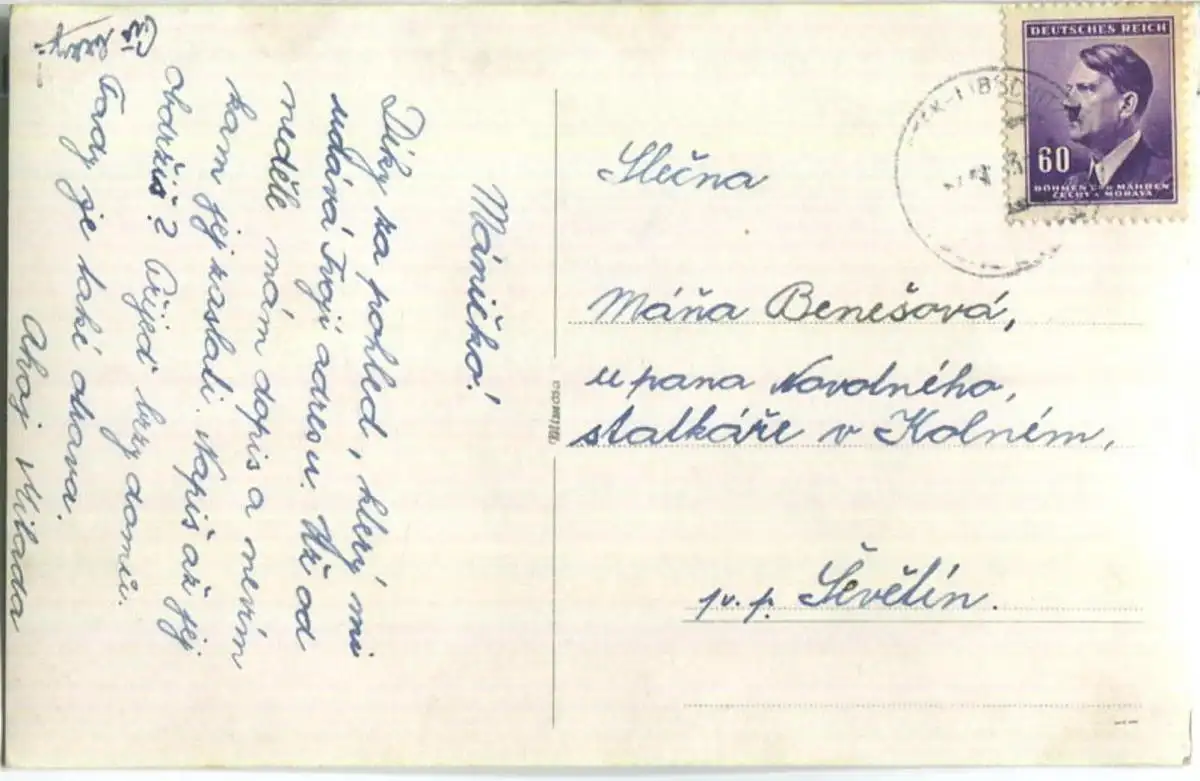 Máničko!
Díky za pohled, který mi
udává Tvoji adresu. Už od
neděle mám dopis a nevím
kam jej zaslali. Napiš až jej
obdržíš? Přijeď brzy domů.
Tady je také otrava.
Ahoj Milada
DEUTSCHES REICH
60
BÖHMEN UND MÄHREN
ČECHY A MORAVA
Slečna
Máňa Benešová,
u pana Novotného,
statkáře v Kolném,
p. p. Ševětín.